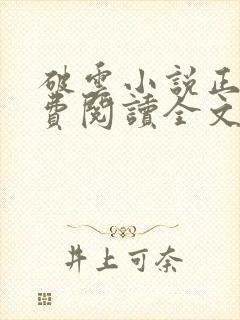 破雲小說正
費閱讀全文
井上可奈